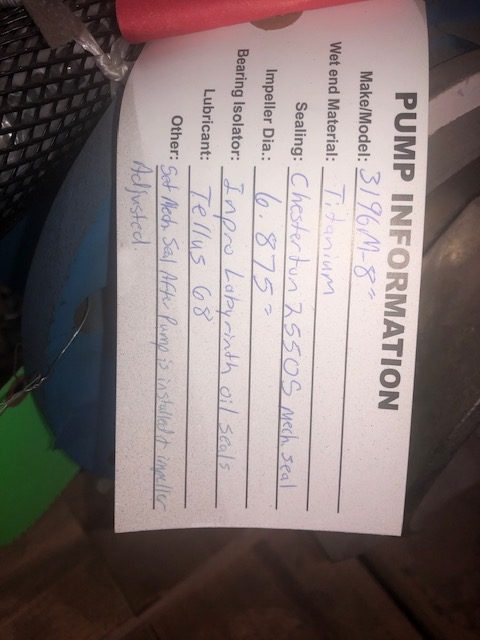 PUMP INFORMATION
Make/Model: 3196M-8"
Wet end Material: Titanium
Sealing: Chesterton 255OS Mech seal
Impeller Dia.: 6.875"
Bearing Isolator: Inpro Labyrinth oil seals
Lubricant: Tellus 68
Other: Set Mech Seal After Pump is installed & impeller
Adjusted